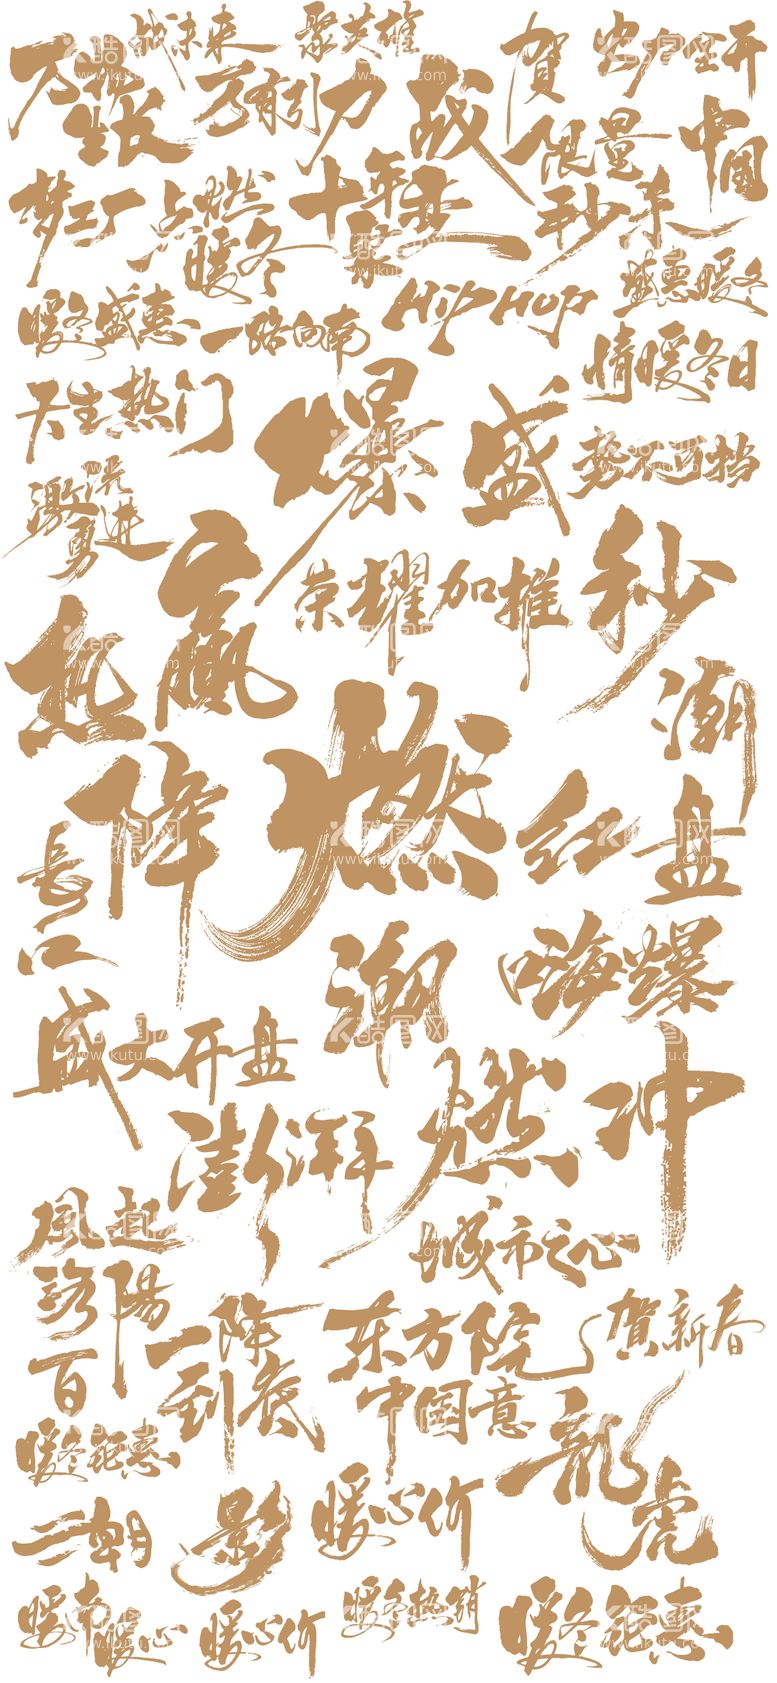 战未来
聚英雄
贺
万物
生长
万有引力
战
中国
限量
秒杀
梦工厂
点燃
暖冬
十年
聚变
盛惠暖冬
暖冬盛惠
一路向南
HipHop
情暖冬日
天生热门
爆
盛
势不可挡
激流
勇进
赢
荣耀加推
秒
热
潮
降
燃
红
盘
長江
潮
嗨爆
盛大开盘
燃
冲
澎湃
風起
洛陽
城市之心
一降
到底
东方院
中国意
贺新春
百
暖冬钜惠
龍虎
二朝
影
暖心价
暖南暖心
暖心价
暖冬热销
暖冬钜惠